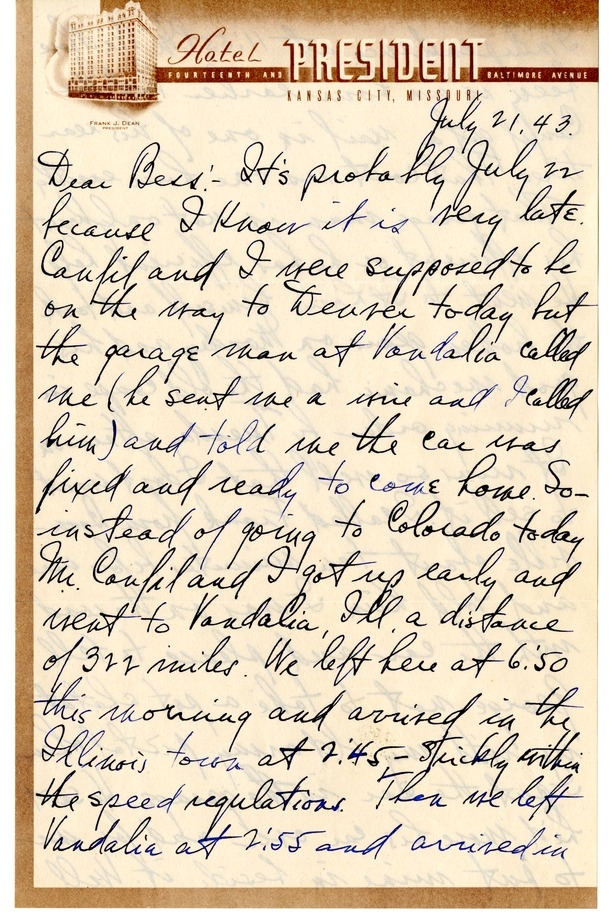 Hotel PRESIDENT
FOURTEENTH AND BALTIMORE AVENUE
KANSAS CITY, MISSOURI
FRANK J. DEAN
PRESIDENT
July 21, 43.
Dear Bess:- It's probably July 22
because I know it is very late.
Canfil and I were supposed to be
on the way to Denver today but
the garage man at Vandalia called
me (he sent me a wire and I called
him) and told me the car was
fixed and ready to come home. So-
instead of going to Colorado today
Mr. Canfil and I got up early and
went to Vandalia, Ill, a distance
of 322 miles. We left here at 6:50
this morning and arrived in the
Illinois town at 2:45,- Strickly within
the speed regulations. Then we left
Vandalia at 2:55 and arrived in